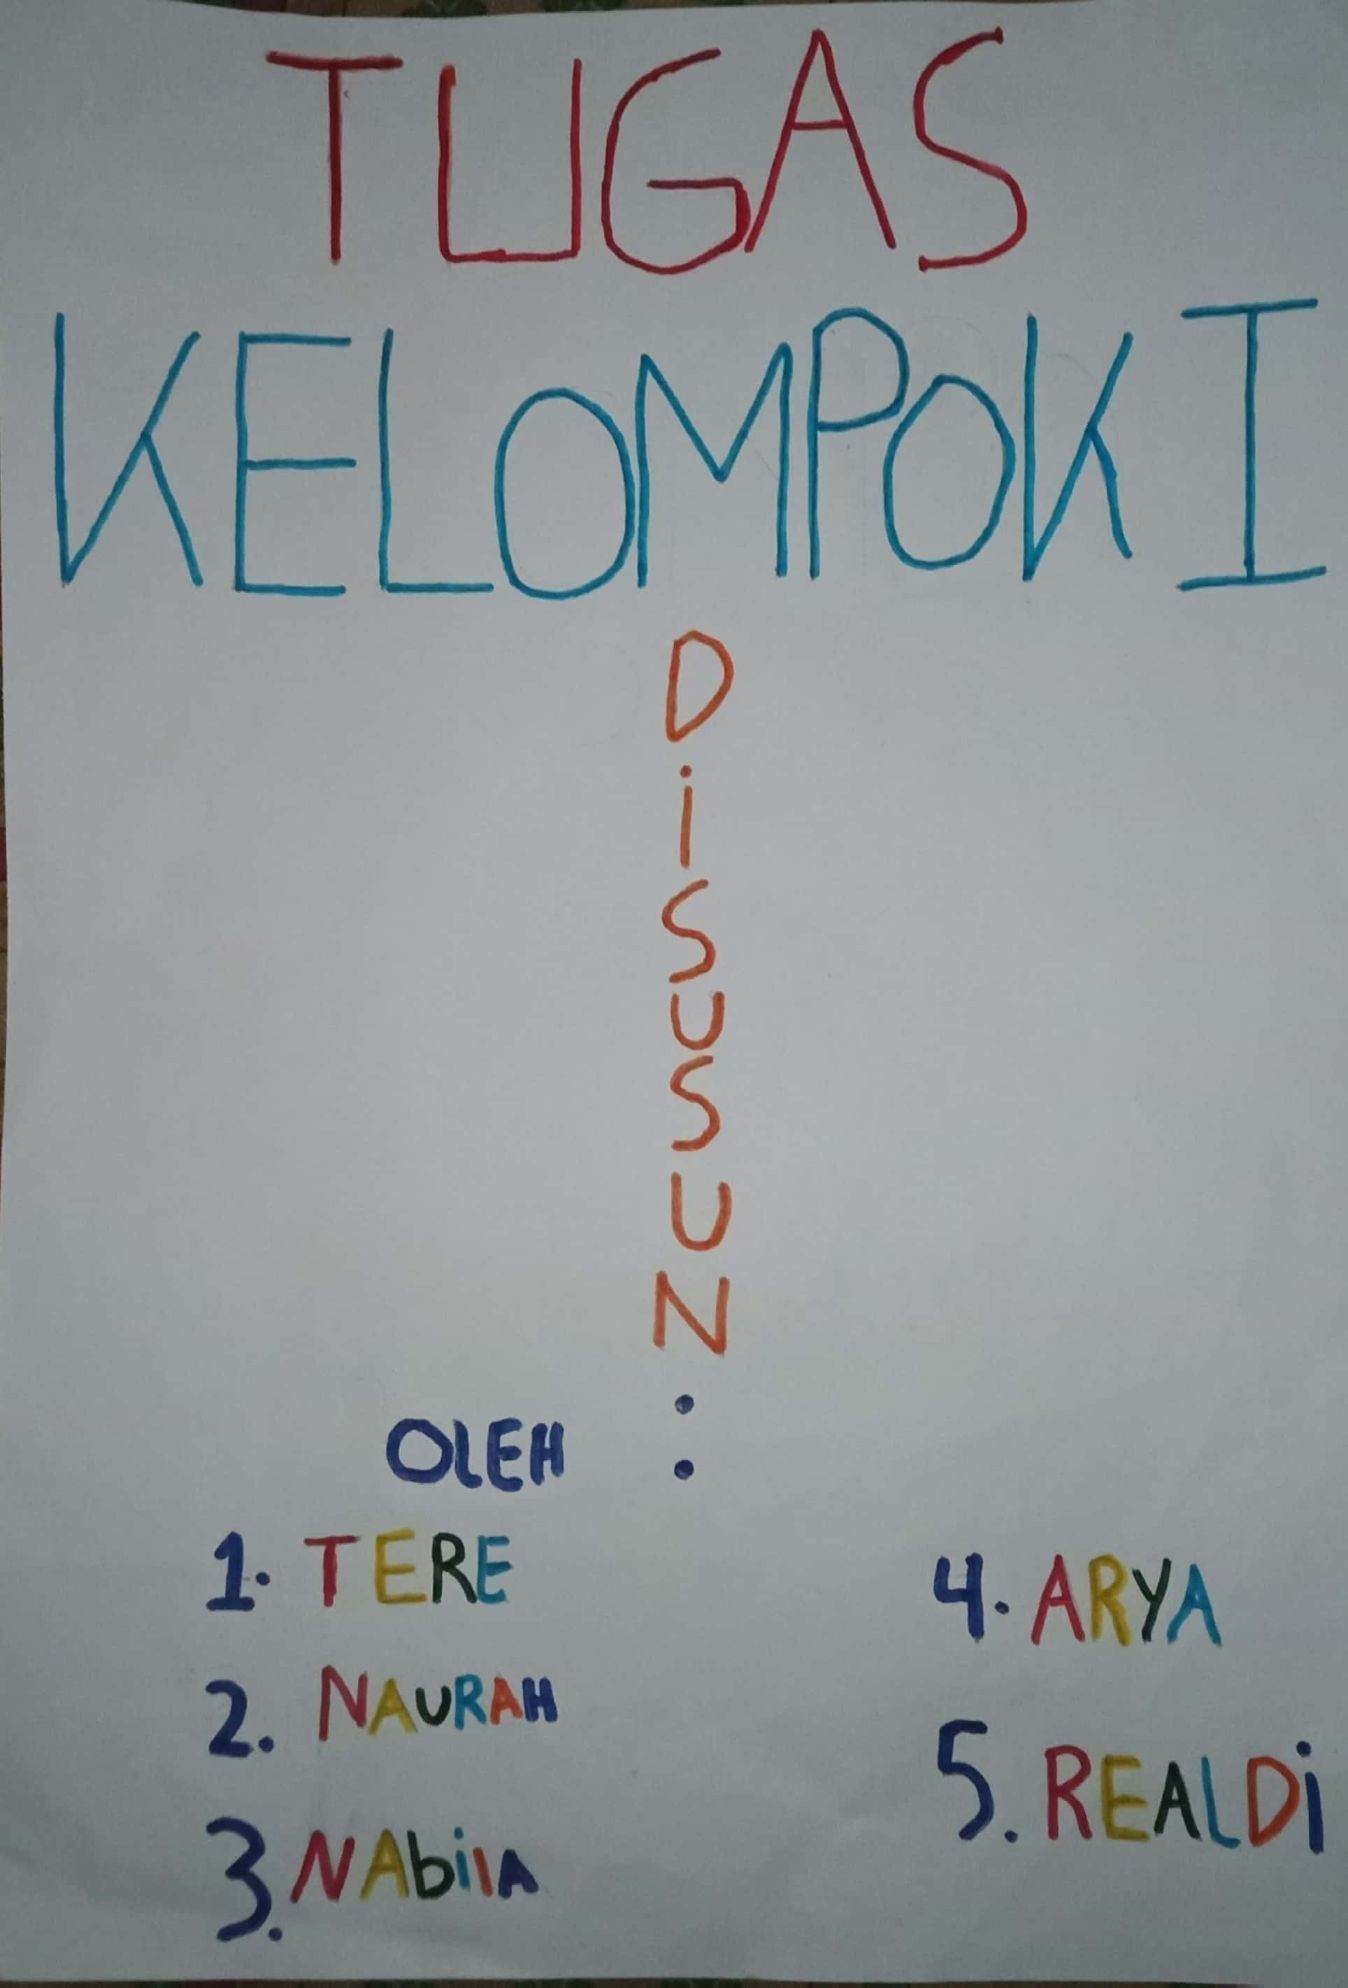 TUGAS
KELOMPOK I
DiSUSUN
OLEH :
1. TERE
2. NAURAH
3. NAbilA
4. ARYA
5. REALDi